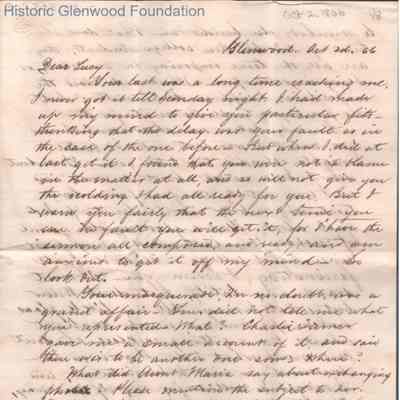 Historic Glenwood Foundation
Glenwood. Oct 2d. 66
Dear Lucy
Your last was a long time reaching me.
I never got it till Sunday night I had made
up my mind to give you particular fits
thinking that the delay was your fault as in
the case of the one before – But when I did at
last get it I found that you were not to blame
in the matter at all, and so will not give you
the scolding I had all ready for you. But I
warn you fairly that the next time you
are in fault you will get it, for I have the
sermon all composed and ready and am
anxious to get it off my mind – So
look out. –
Your masquerade I've no doubt, was a
grand affair. You did not tell me what
you represented. What? Charlie
gave me a small account of it and said
there was to be another one soon. Where?
What did Aunt Maria say about exchanging
photos? Please mention the subject to her.